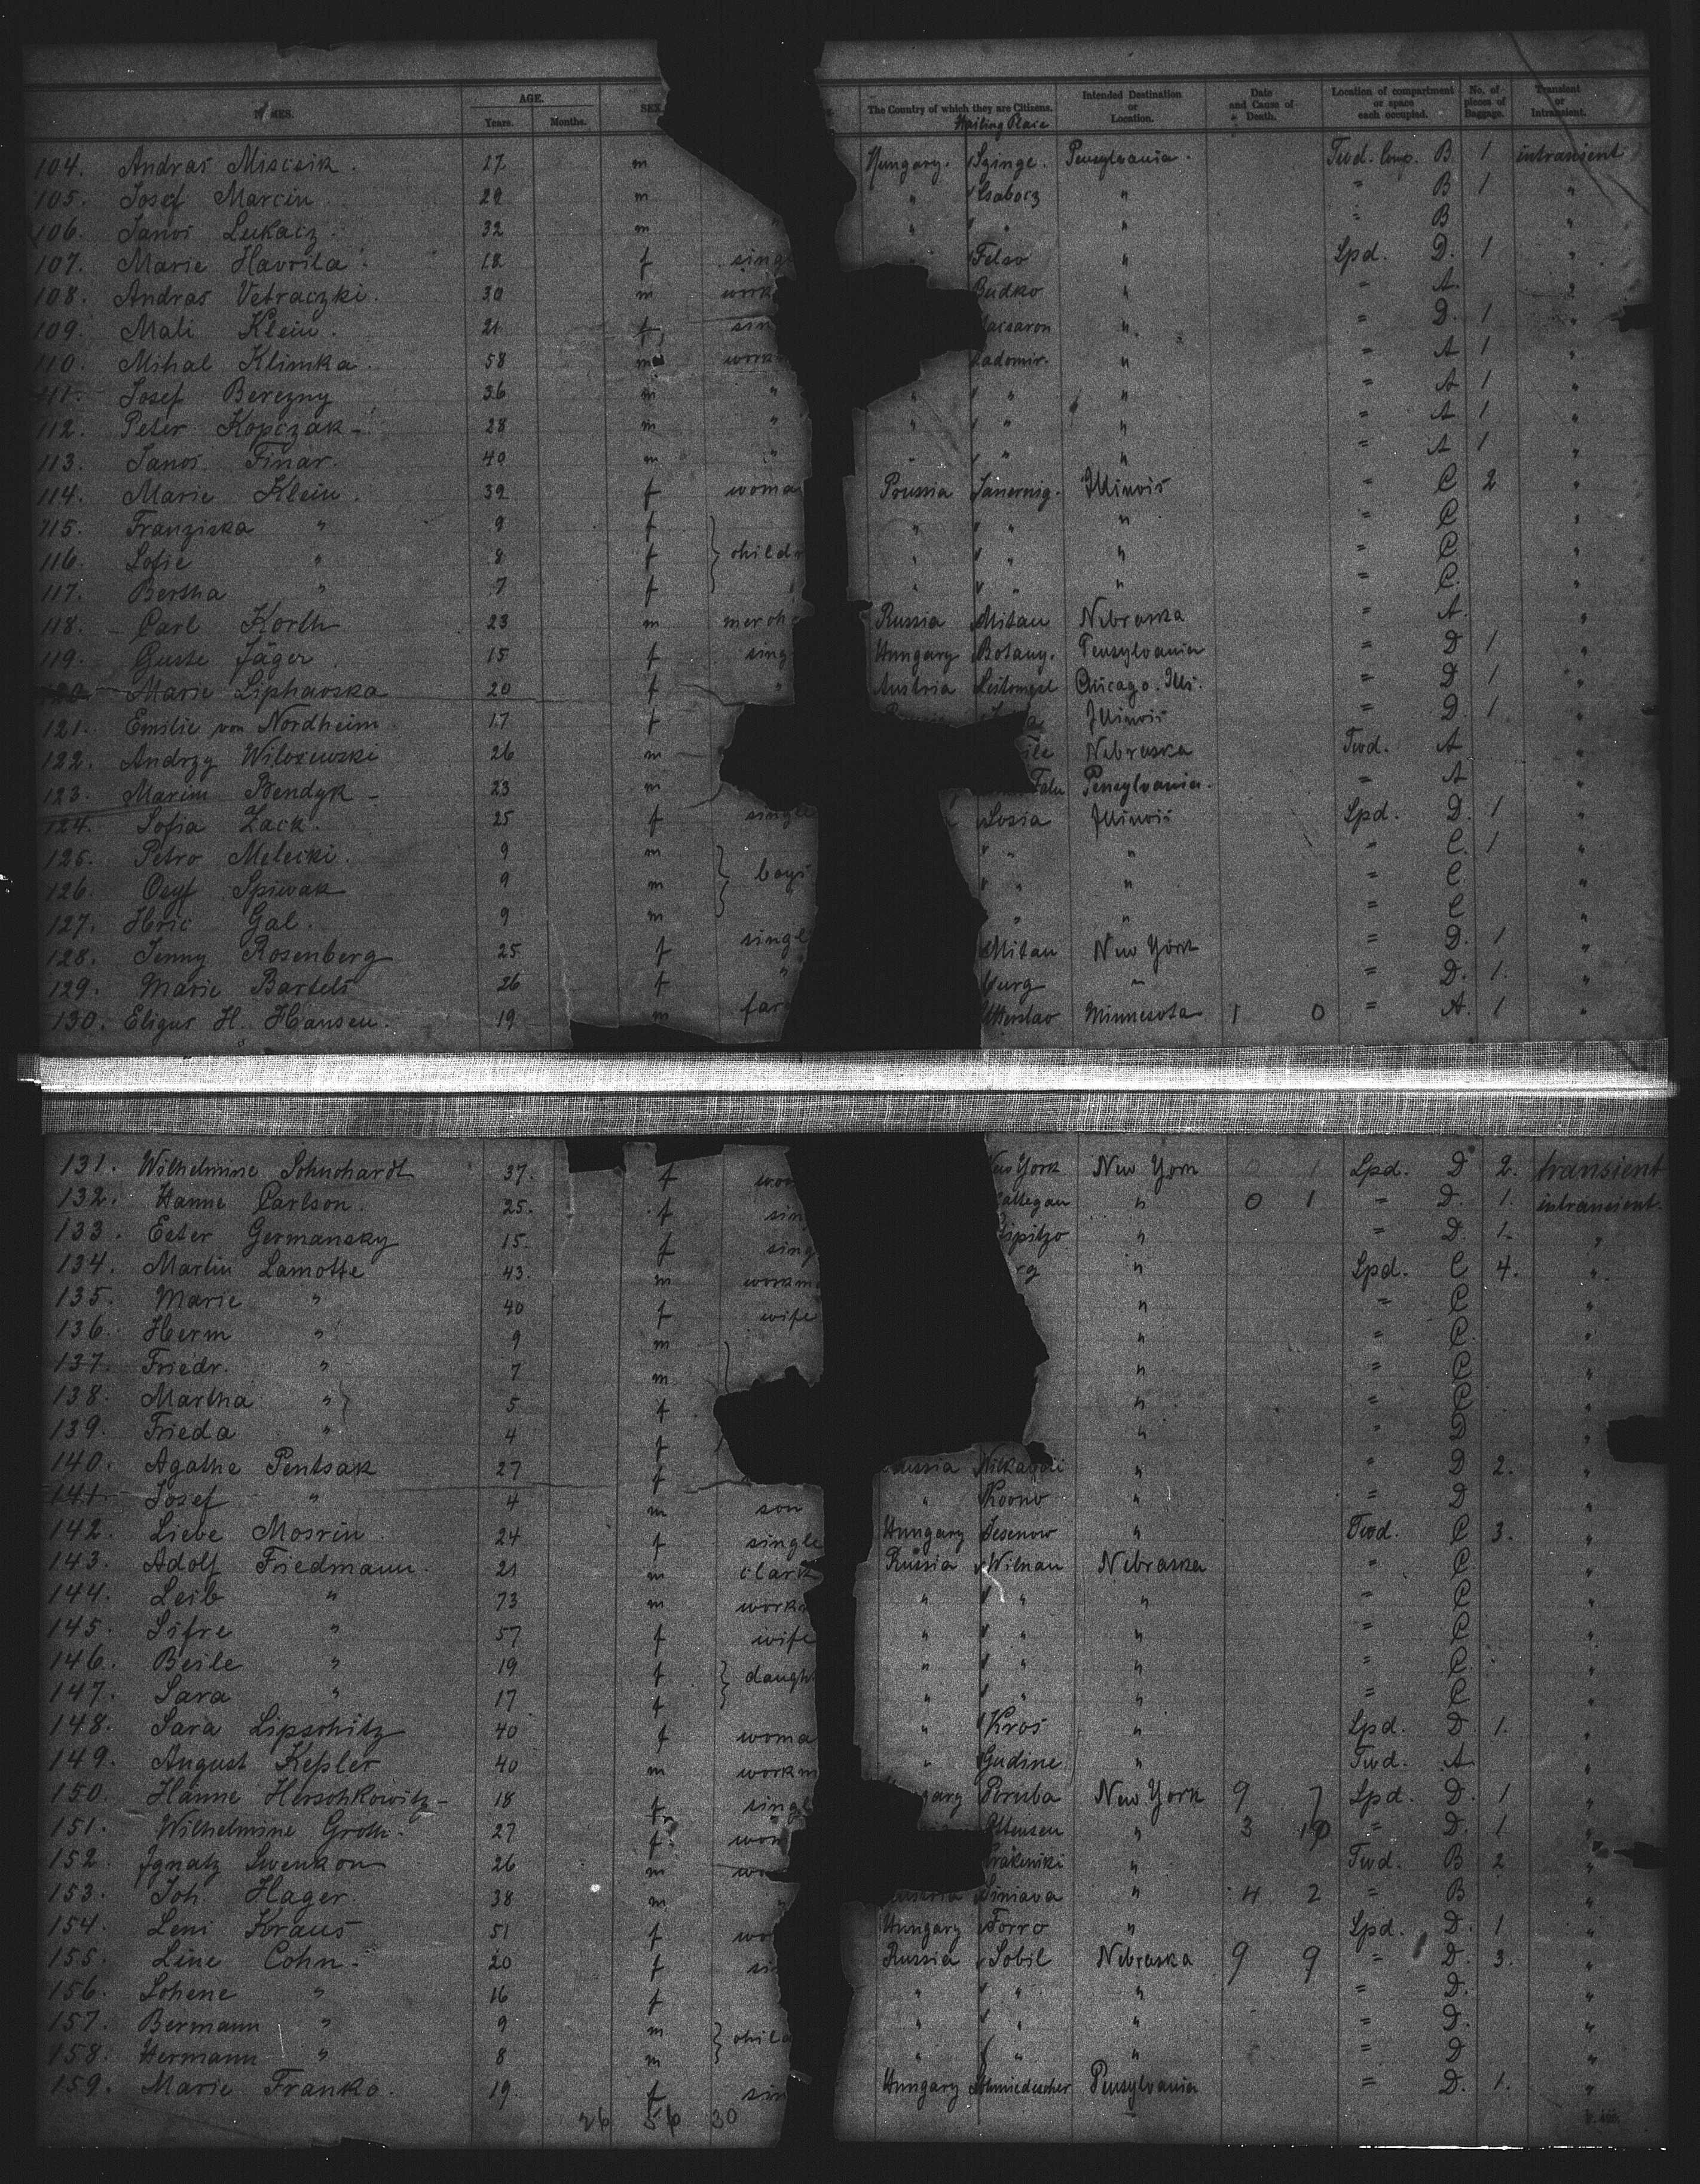 NAMES. AGE. Years. Months. SEX. The Country of which they are Citizens. Intended Destination or Location. Date and Cause of Death. Location of compartment or space each occupied. No. of pieces of Baggage. Transient or Intransient.
104. Andras Miscsik. 27 m Hungary. Szinge. Pensylvania. Twd. Comp. B 1 intransient
105. Josef Marcin 29 m " Csabocz " " B 1 "
106. Janos Lukacz 32 m " " " " " B "
107. Marie Havrila 18 f sing Felso " Spd. D. 1 "
108. Andras Vetraczki. 30 m work Budko " " A. "
109. Mali Klein. 21 f sin " " D. 1 "
110. Mihal Klimka. 58 m work adomir. " " A 1 "
111. Josef Berezny 36 m " " " " " A 1 "
112. Peter Kopczak 28 m " " " " " A 1 "
113. Janos Finar. 40 m " " " " " A 1 "
114. Marie Klein. 39 f woma Prussia Illinois " C 2 "
115. Franziska " 9 f " " " " C "
116. Sofie " 8 f child " " " " C "
117. Bertha " 7 f " " " " C. "
118. Carl Korth 23 m merch Russia Mitau Nebraska " A. "
119. Guste Jäger 15 f sing Hungary Botany. Pensylvania " D 1 "
120. Marie Liphavska 20 f " Austria Leitomysl Chicago. Ills. " D 1 "
121. Emilie von Nordheim 17 f Illinois " D. 1. "
122. Andrzy Wilozewski 26 m Nebraska Twd. A "
123. Marim Bendyk 23 m Falu Pensylvania. " A "
124. Sofia Zack. 25 f single Sosia Illinois Spd. D. 1 "
125. Petro Melecki. 9 m " " " C. 1 "
126. Osyf Spiwak 9 m boys " " " C. "
127. Hric Gal. 9 m " " " C "
128. Jenny Rosenberg 25 f singl Mitau New York " D. 1 "
129. Marie Bartels 26 f " burg " " D. 1. "
130. Eligus H. Hansen. 19 m far Minnesota 1 0 " A. 1 "
131. Wilhelmine Schuchardt 37. f wom New York New York 0 1 Spd. D 2. transient
132. Hanne Carlson. 25. f sin " 0 1 " D. 1. intransient.
133. Ester Germansky 15. f sing " " D. 1. "
134. Martin Lamotte 43. m workm rg " Spd. C 4. "
135. Marie " 40 f wife " " C "
136. Herm " 9 m " " C "
137. Friedr. " 7 m " " C "
138. Martha " 5 f " " C "
139. Frieda " 4 f " " D "
140. Agathe Pentsak 27 f ussia " " D 2. "
141. Josef " 4 m son " Koono " " D "
142. Liebe Mosrin 24 f single Hungary Jesenow " Twd. C 3. "
143. Adolf Friedmann. 21 m clark Russia Wilnau Nebraska " C "
144. Leib " 73 m workm " " " " C "
145. Sifre " 57 f wife " " " " C "
146. Beile " 19 f daught " " " " C. "
147. Sara " 17 f " " " " C "
148. Sara Lipschitz 40 f woma " Kros " Spd. D. 1. "
149. August Kepler 40 m workm " Gudine " Twd. A "
150. Hanne Herschkowitz 18 f singl gary Poruba New York 9 7 Spd. D. 1 "
151. Wilhelmine Groth. 27 f. wom Ottensen " 3 " D. 1 "
152. Ignatz Swenkon 26 m wo " Twd. B 2 "
153. Joh Hager. 38 m " Siniava " 4 2 " B "
154. Leni Kraus 51 f wo Hungary Forro " Spd. D. 1 "
155. Line Cohn. 20 f si Russia Sobil Nebraska 9 9 " D. 3. "
156. Schene " 16 f " " " " D. "
157. Bermann " 9 m " " " " D. "
158. Hermann " 8 m child " " " " D "
159. Marie Franko. 19. f sin Hungary Pensylvania " D. 1. "
26 56 30